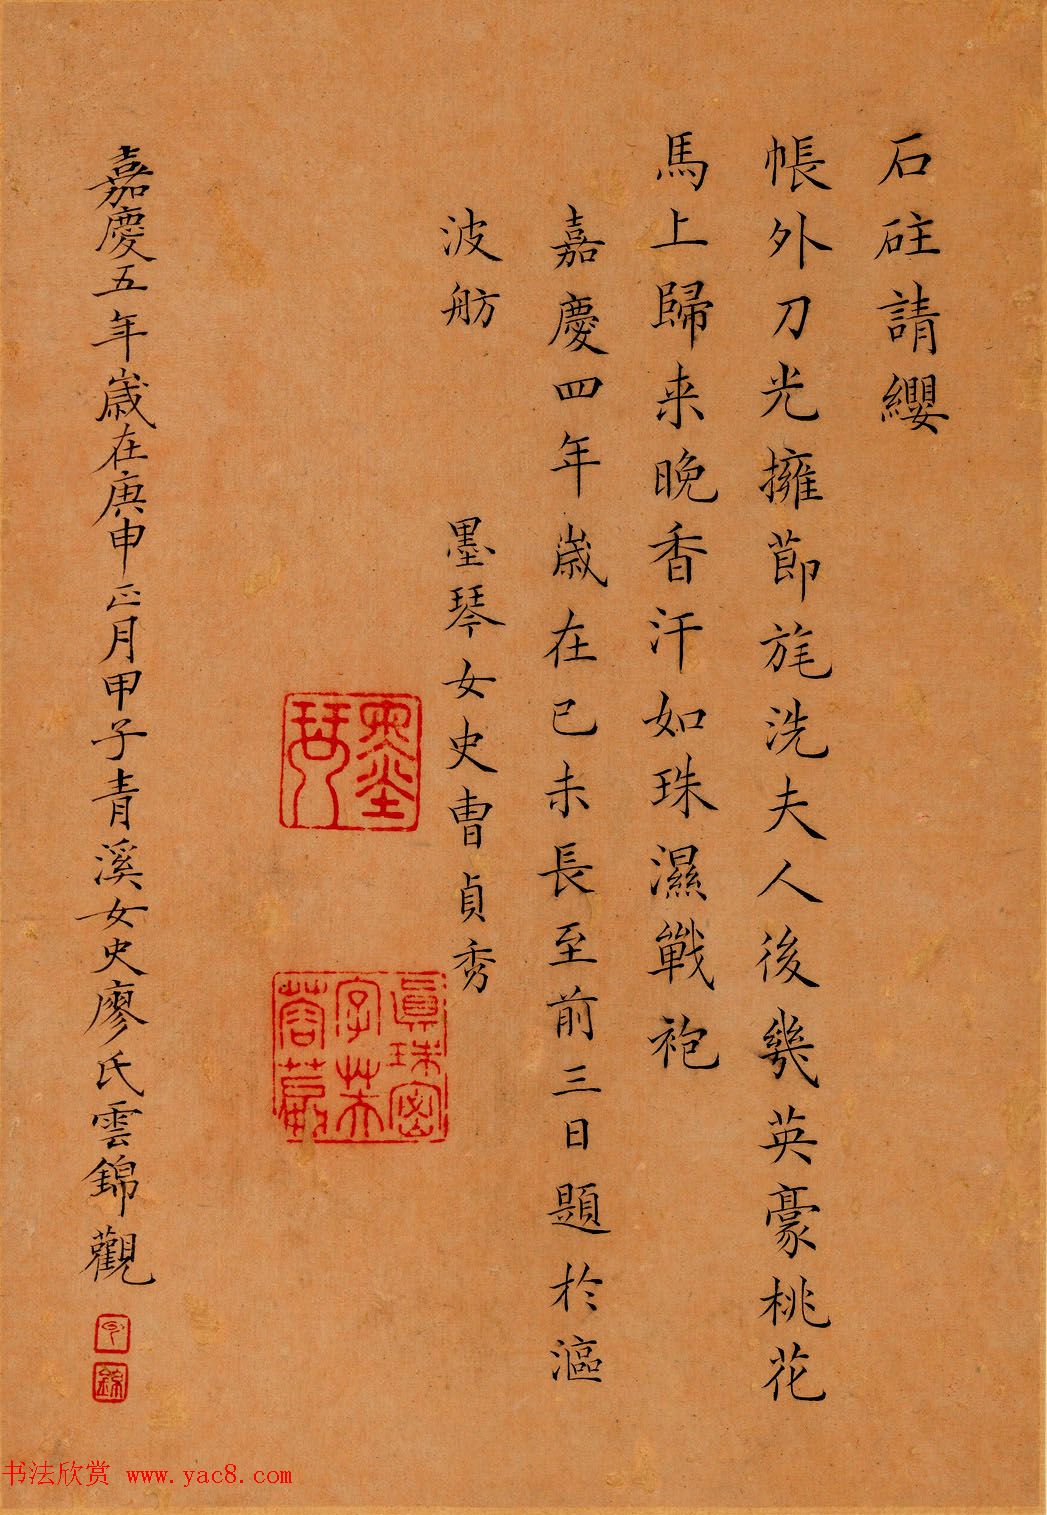 石砫請纓
帳外刀光擁節旄洗夫人後幾英豪桃花
馬上歸来晚香汗如珠濕戰袍
嘉慶四年歲在已未長至前三日題於漚
波舫
墨琴女史曹貞秀
墨琴
真珠密字芙蓉
嘉慶五年歲在庚申正月甲子青溪女史廖氏雲錦觀
錦
书法欣赏 www.yac8.com